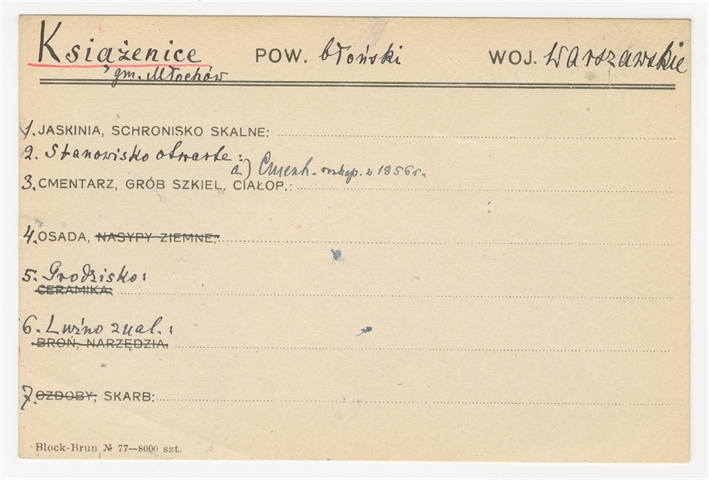 Książenice POW. błoński WOJ. Warszawskie
gm. Młochów
1. JASKINIA, SCHRONISKO SKALNE:
2. Stanowisko otwarte:
a) Cmenh. rozkop. w 1856 r.
3. CMENTARZ, GRÓB SZKIEL, CIAŁOP.:
4. OSADA, NASYPY ZIEMNE:
5. Grodzisko:
CERAMIKA:
6. Luźno znal.:
BROŃ, NARZĘDZIA.
7. OZDOBY, SKARB:
Block-Brun № 77—8000 szt.